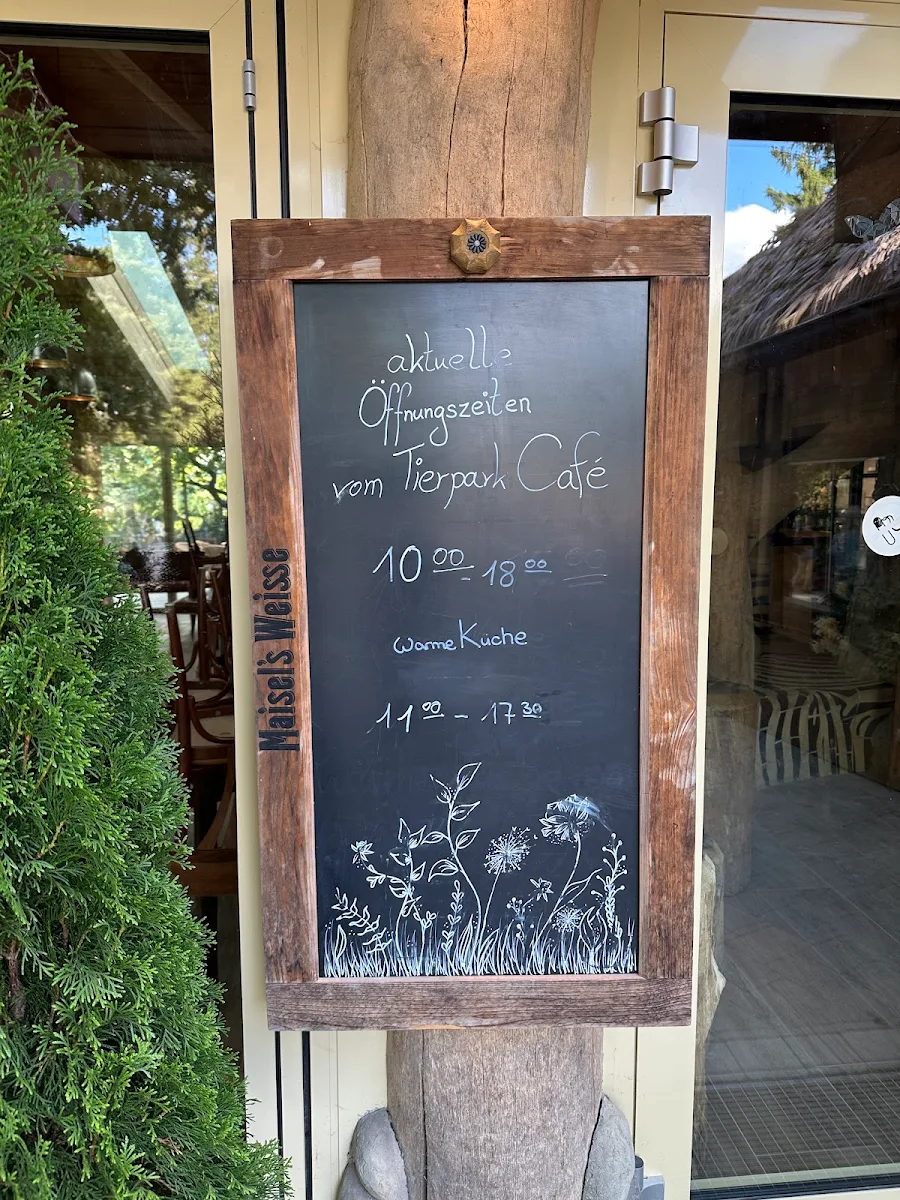 aktuelle
Öffnungszeiten
vom Tierpark Café
10 00 - 18 00
warme Küche
11 00 - 17 30
Maisel's Weisse